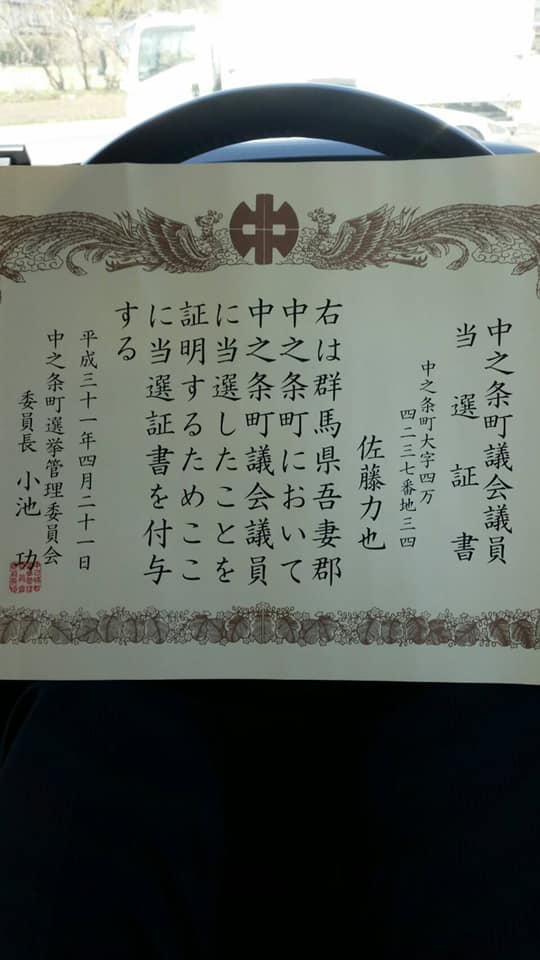 中之条町議会議員
当選証書
中之条町大字四万
四二三七番地三四
佐藤力也
右は群馬県吾妻郡
中之条町において
中之条町議会議員
に当選したことを
証明するためここ
に当選証書を付与
する
平成三十一年四月二十一日
中之条町選挙管理委員会
委員長 小池 功